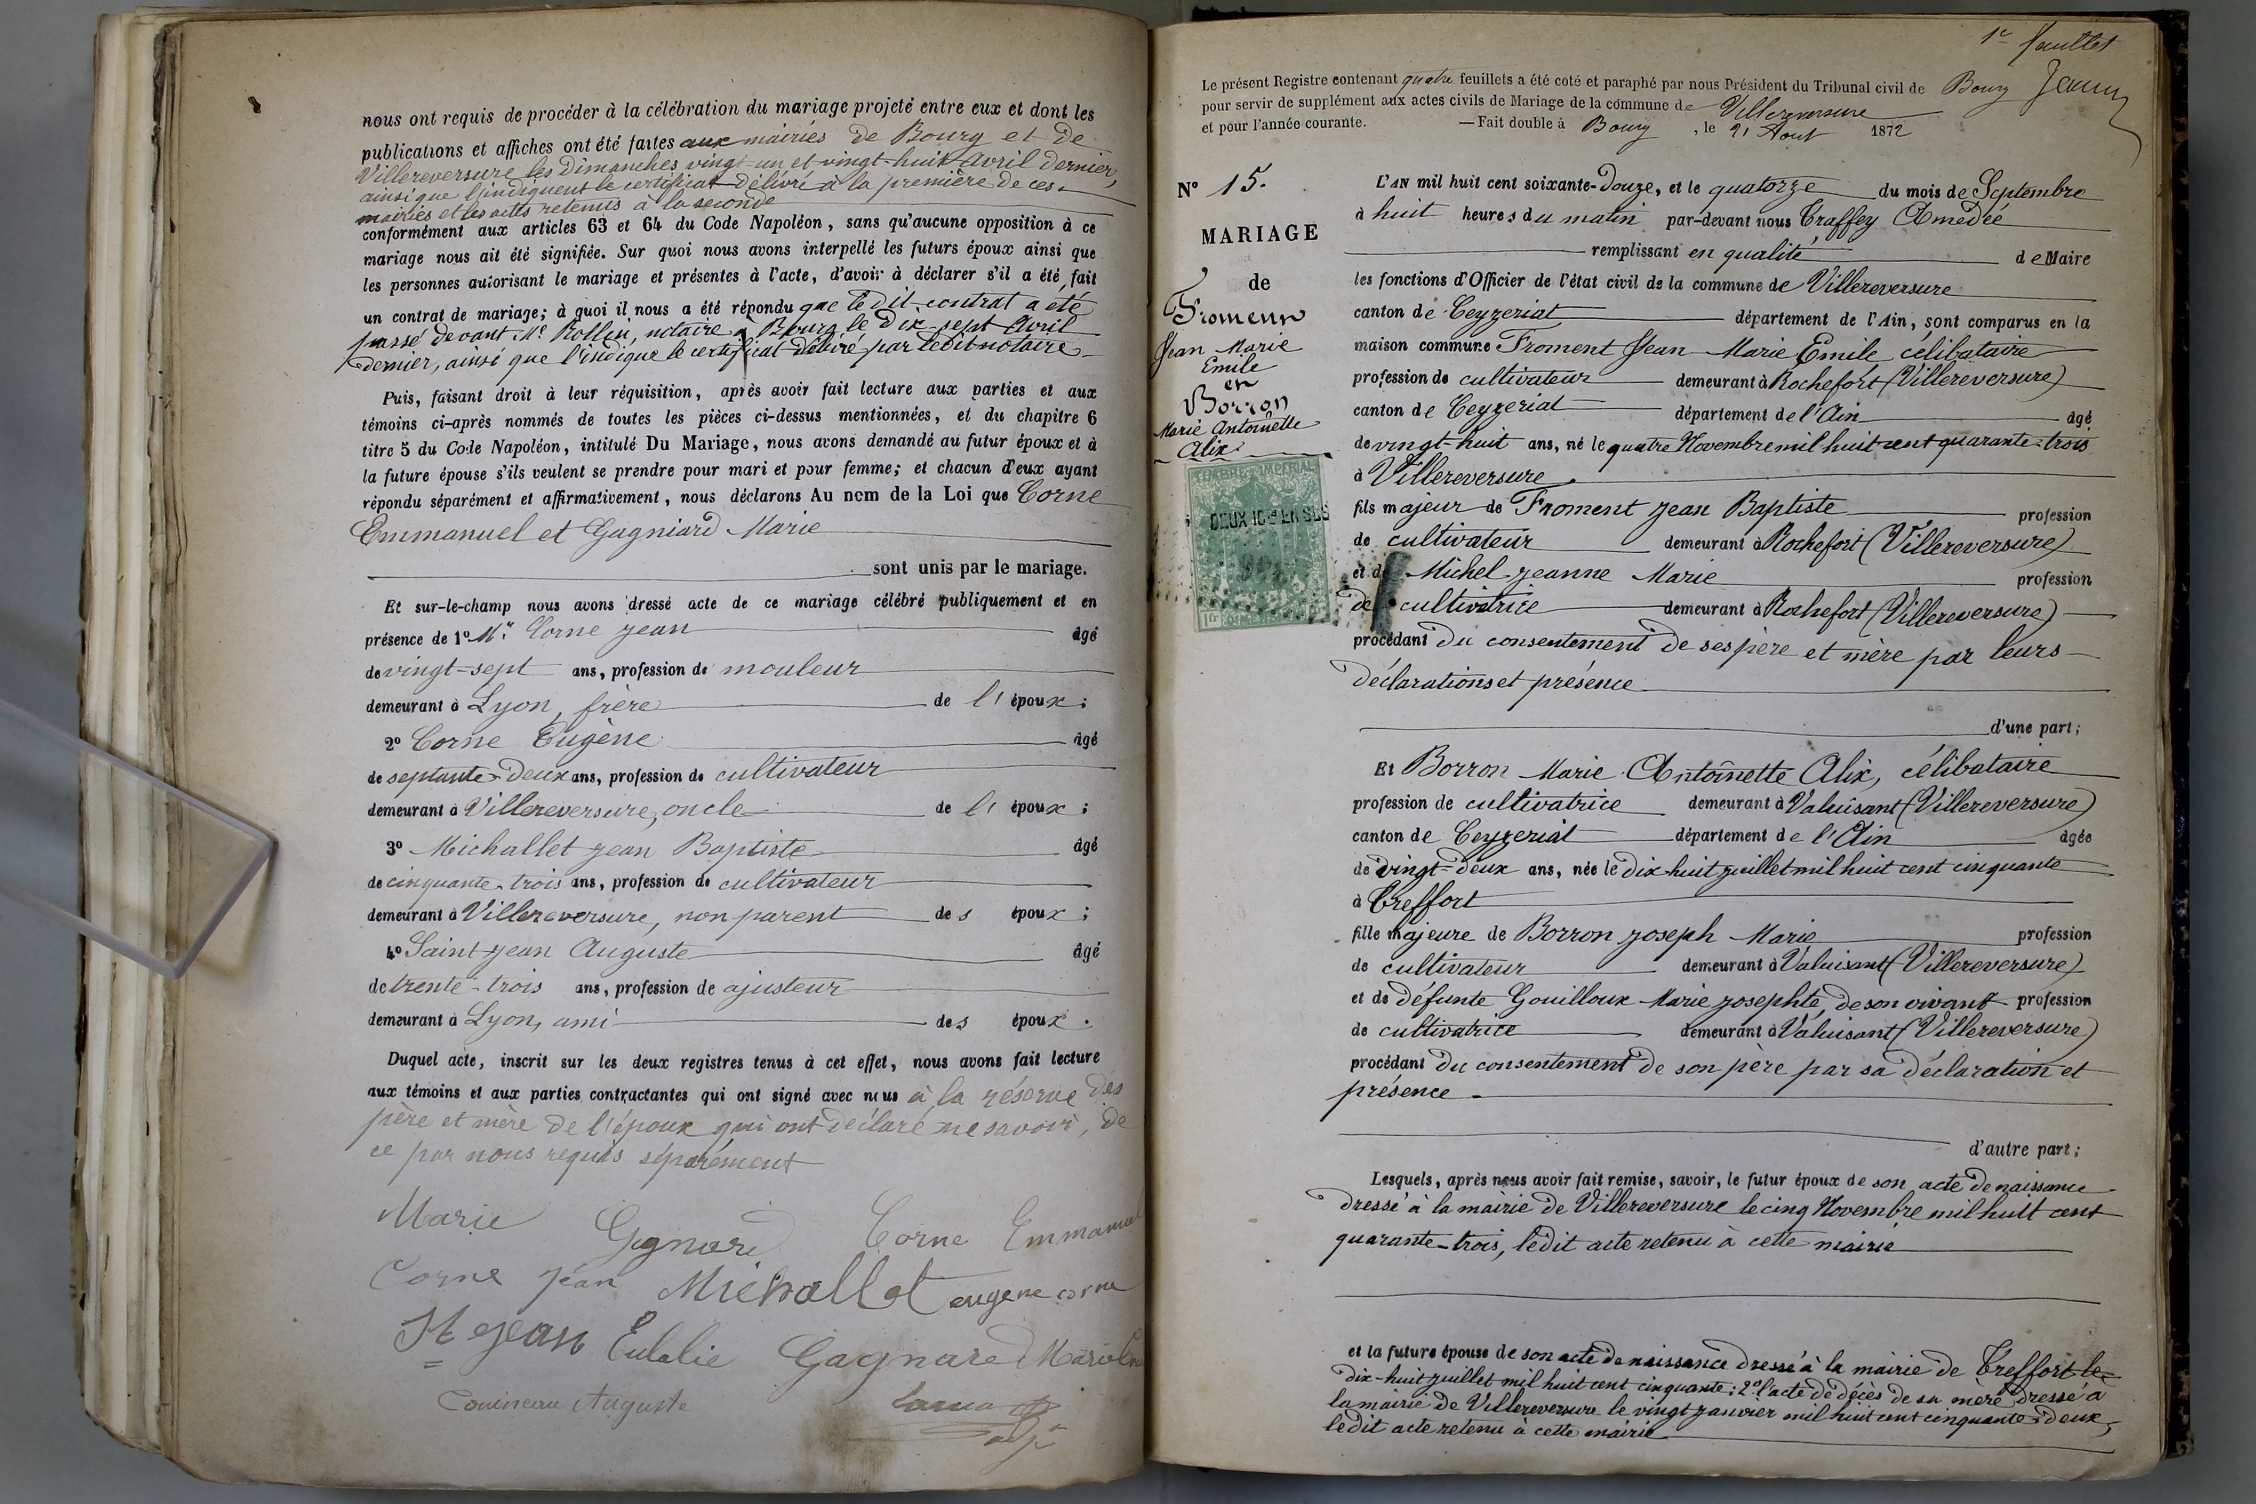 nous ont requis de procéder à la célébration du mariage projeté entre eux et dont les
publications et affiches ont été faites aux mairies de Bourg et de
Villereversure les Dimanches vingt-un et vingt-huit Avril dernier,
ainsi que l'indiquent le certificat délivré à la première de ces
mairies et les actes retenus à la seconde
conformément aux articles 63 et 64 du Code Napoléon, sans qu'aucune opposition à ce
mariage nous ait été signifiée. Sur quoi nous avons interpellé les futurs époux ainsi que
les personnes autorisant le mariage et présentes à l'acte, d'avoir à déclarer s'il a été fait
un contrat de mariage; à quoi il nous a été répondu que le dit contrat a été
passé devant Me Rollin, notaire à Bourg le dix-sept Avril
dernier, ainsi que l'indique le certificat délivré par ledit notaire
Puis, faisant droit à leur réquisition, après avoir fait lecture aux parties et aux
témoins ci-après nommés de toutes les pièces ci-dessus mentionnées, et du chapitre 6
titre 5 du Code Napoléon, intitulé Du Mariage, nous avons demandé au futur époux et à
la future épouse s'ils veulent se prendre pour mari et pour femme; et chacun d'eux ayant
répondu séparément et affirmativement, nous déclarons Au nom de la Loi que Corne
Emmanuel et Gagniard Marie
sont unis par le mariage.
Et sur-le-champ nous avons dressé acte de ce mariage célébré publiquement et en
présence de 1° Mr Corne Jean âgé
de vingt-sept ans, profession de mouleur
demeurant à Lyon, frère de l' époux;
2° Corne Eugène âgé
de septante-deux ans, profession de cultivateur
demeurant à Villereversure, oncle de l' époux;
3° Michallet Jean Baptiste âgé
de cinquante-trois ans, profession de cultivateur
demeurant à Villereversure, non parent des époux;
4° Saint-Jean Auguste âgé
de trente-trois ans, profession de ajusteur
demeurant à Lyon, ami des époux.
Duquel acte, inscrit sur les deux registres tenus à cet effet, nous avons fait lecture
aux témoins et aux parties contractantes qui ont signé avec nous à la réserve des
père et mère de l'époux qui ont déclaré ne savoir, de
ce par nous requis séparément
Marie Gagnard Corne Emmanuel
Corne Jean Michallet eugene corne
St Jean Eulalie Gagnard
Auguste
adjt
1er feuillet
Le présent Registre contenant quatre feuillets a été coté et paraphé par nous Président du Tribunal civil de Bourg
pour servir de supplément aux actes civils de Mariage de la commune de Villereversure
et pour l'année courante. — Fait double à Bourg, le 21 Aout 1872
N° 15.
MARIAGE
de
Froment
Jean Marie
Emile
et
Borron
Marie Antoinette
Alix
TIMBRE IMPERIAL
DEUX 10es EN SUS
1fr
L'AN mil huit cent soixante-Douze, et le quatorze du mois de Septembre
à huit heures du matin par-devant nous Traffey Amédée
remplissant en qualité de Maire
les fonctions d'Officier de l'état civil de la commune de Villereversure
canton de Ceyzeriat département de l'Ain, sont comparus en la
maison commune Froment Jean Marie Emile célibataire
profession de cultivateur demeurant à Rochefort (Villereversure)
canton de Ceyzeriat département de l'Ain âgé
de vingt-huit ans, né le quatre Novembre mil huit cent quarante-trois
à Villereversure
fils majeur de Froment Jean Baptiste profession
de cultivateur demeurant à Rochefort (Villereversure)
et de Michel Jeanne Marie profession
de cultivatrice demeurant à Rochefort (Villereversure)
procédant du consentement de ses père et mère par leurs
déclarations et présence
d'une part;
Et Borron Marie Antoinette Alix, célibataire
profession de cultivatrice demeurant à Valuisant (Villereversure)
canton de Ceyzeriat département de l'Ain âgée
de vingt-deux ans, née le dix-huit juillet mil huit cent cinquante
à Treffort
fille majeure de Borron Joseph Marie profession
de cultivateur demeurant à Valuisant (Villereversure)
et de défunte Gouilloux Marie Josephte, de son vivant profession
de cultivatrice demeurant à Valuisant (Villereversure)
procédant du consentement de son père par sa déclaration et
présence
d'autre part;
Lesquels, après nous avoir fait remise, savoir, le futur époux de son acte de naissance
dressé à la mairie de Villereversure le cinq Novembre mil huit cent
quarante-trois, ledit acte retenu à cette mairie
et la future épouse de son acte de naissance dressé à la mairie de Treffort le
dix-huit juillet mil huit cent cinquante; 2° l'acte de décès de sa mère dressé à
la mairie de Villereversure le vingt janvier mil huit cent cinquante-deux,
ledit acte retenu à cette mairie